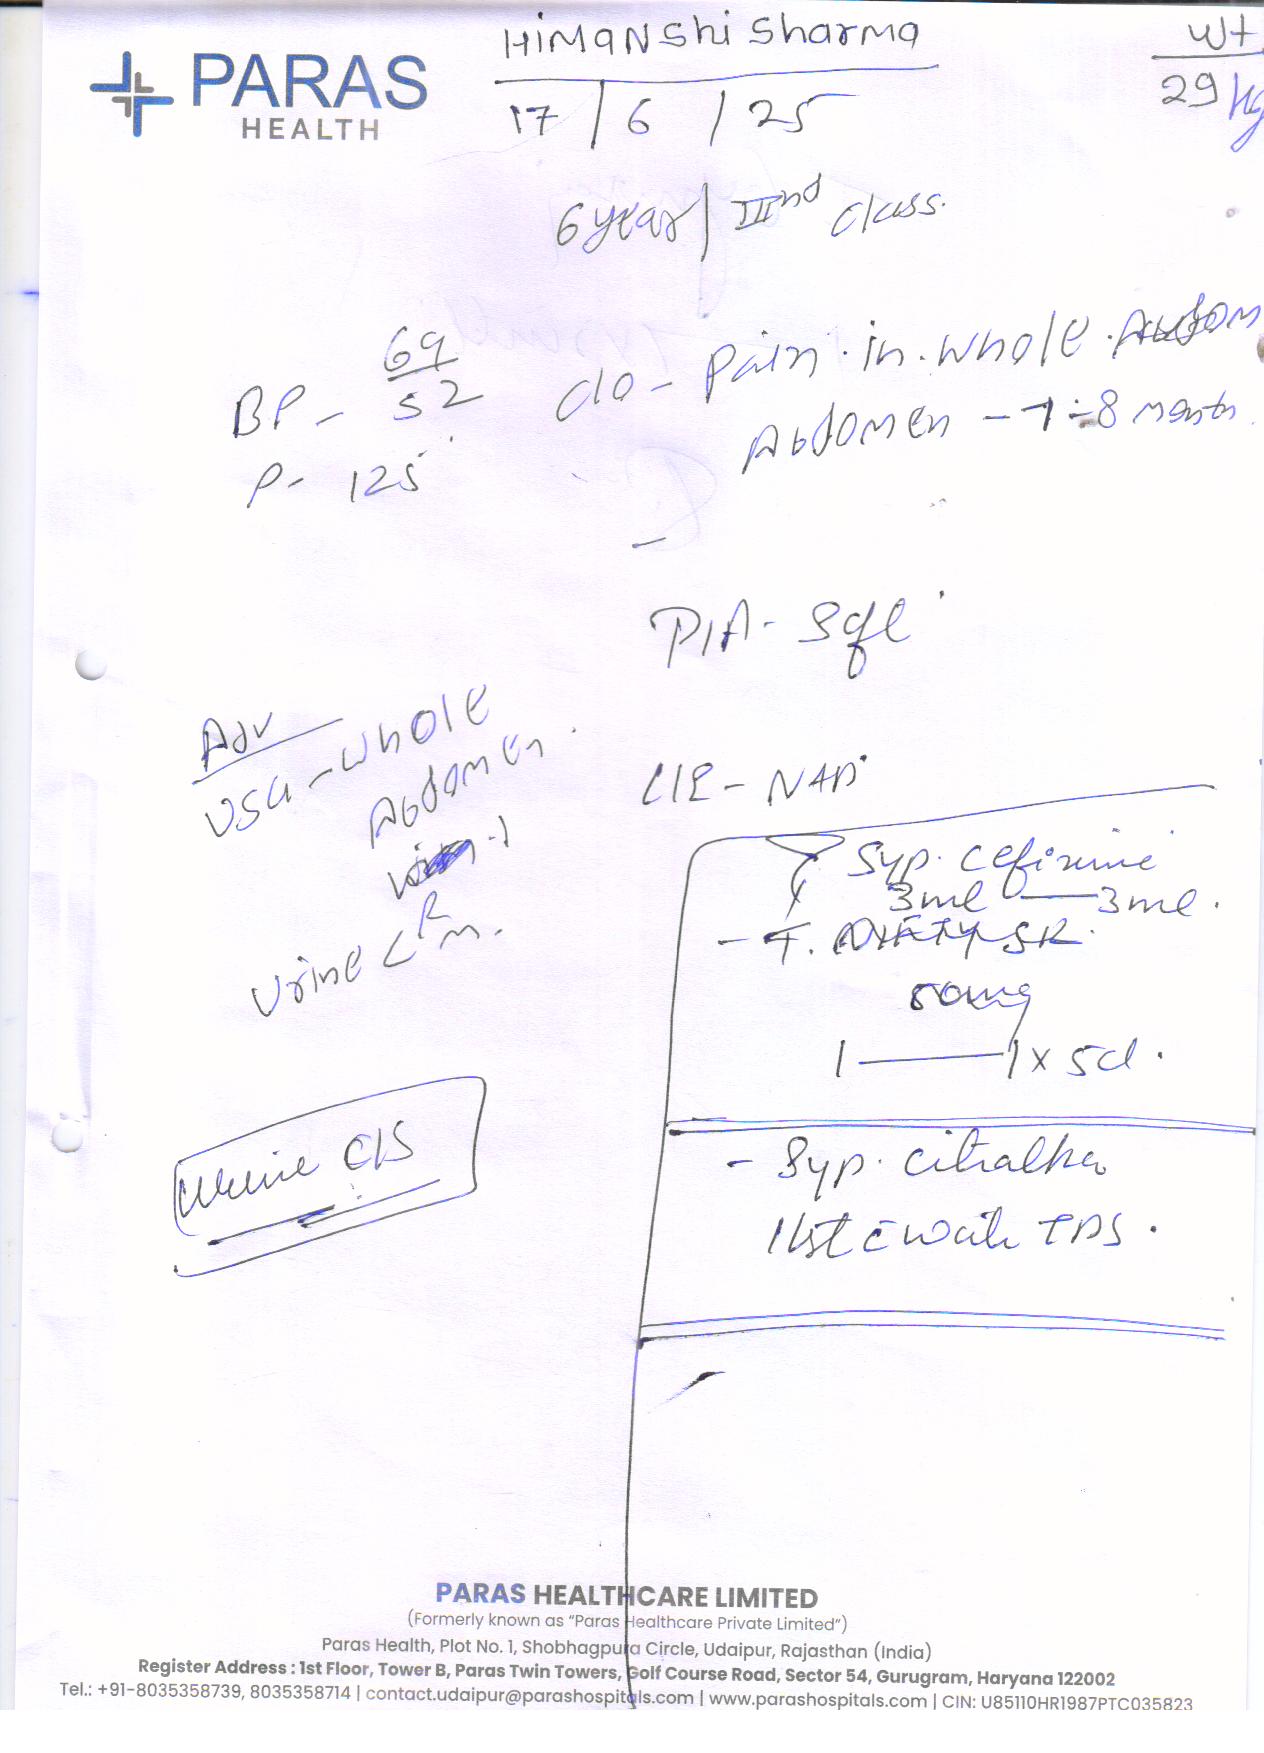 PARAS
HEALTH
HiMaNshi Sharma
17/6/25
Wt
29 kg
6 year | IIInd class.
BP - 69/52
P- 125
C/O - Pain. in. whole.
Abdomen - 7-8 month.
P/A - Soft
L/E - NAD
Adv
USG - whole
Abdomen.
Urine R/M.
Urine C/S
Syp. Cefixime
3ml — 3ml.
- T. SR.
50mg
1 — 1 x 5d.
- Syp. Citralka
1 tst c water TDS.
PARAS HEALTHCARE LIMITED
(Formerly known as "Paras Healthcare Private Limited")
Paras Health, Plot No. 1, Shobhagpura Circle, Udaipur, Rajasthan (India)
Register Address : 1st Floor, Tower B, Paras Twin Towers, Golf Course Road, Sector 54, Gurugram, Haryana 122002
Tel.: +91-8035358739, 8035358714 | contact.udaipur@parashospitals.com | www.parashospitals.com | CIN: U85110HR1987PTC035823